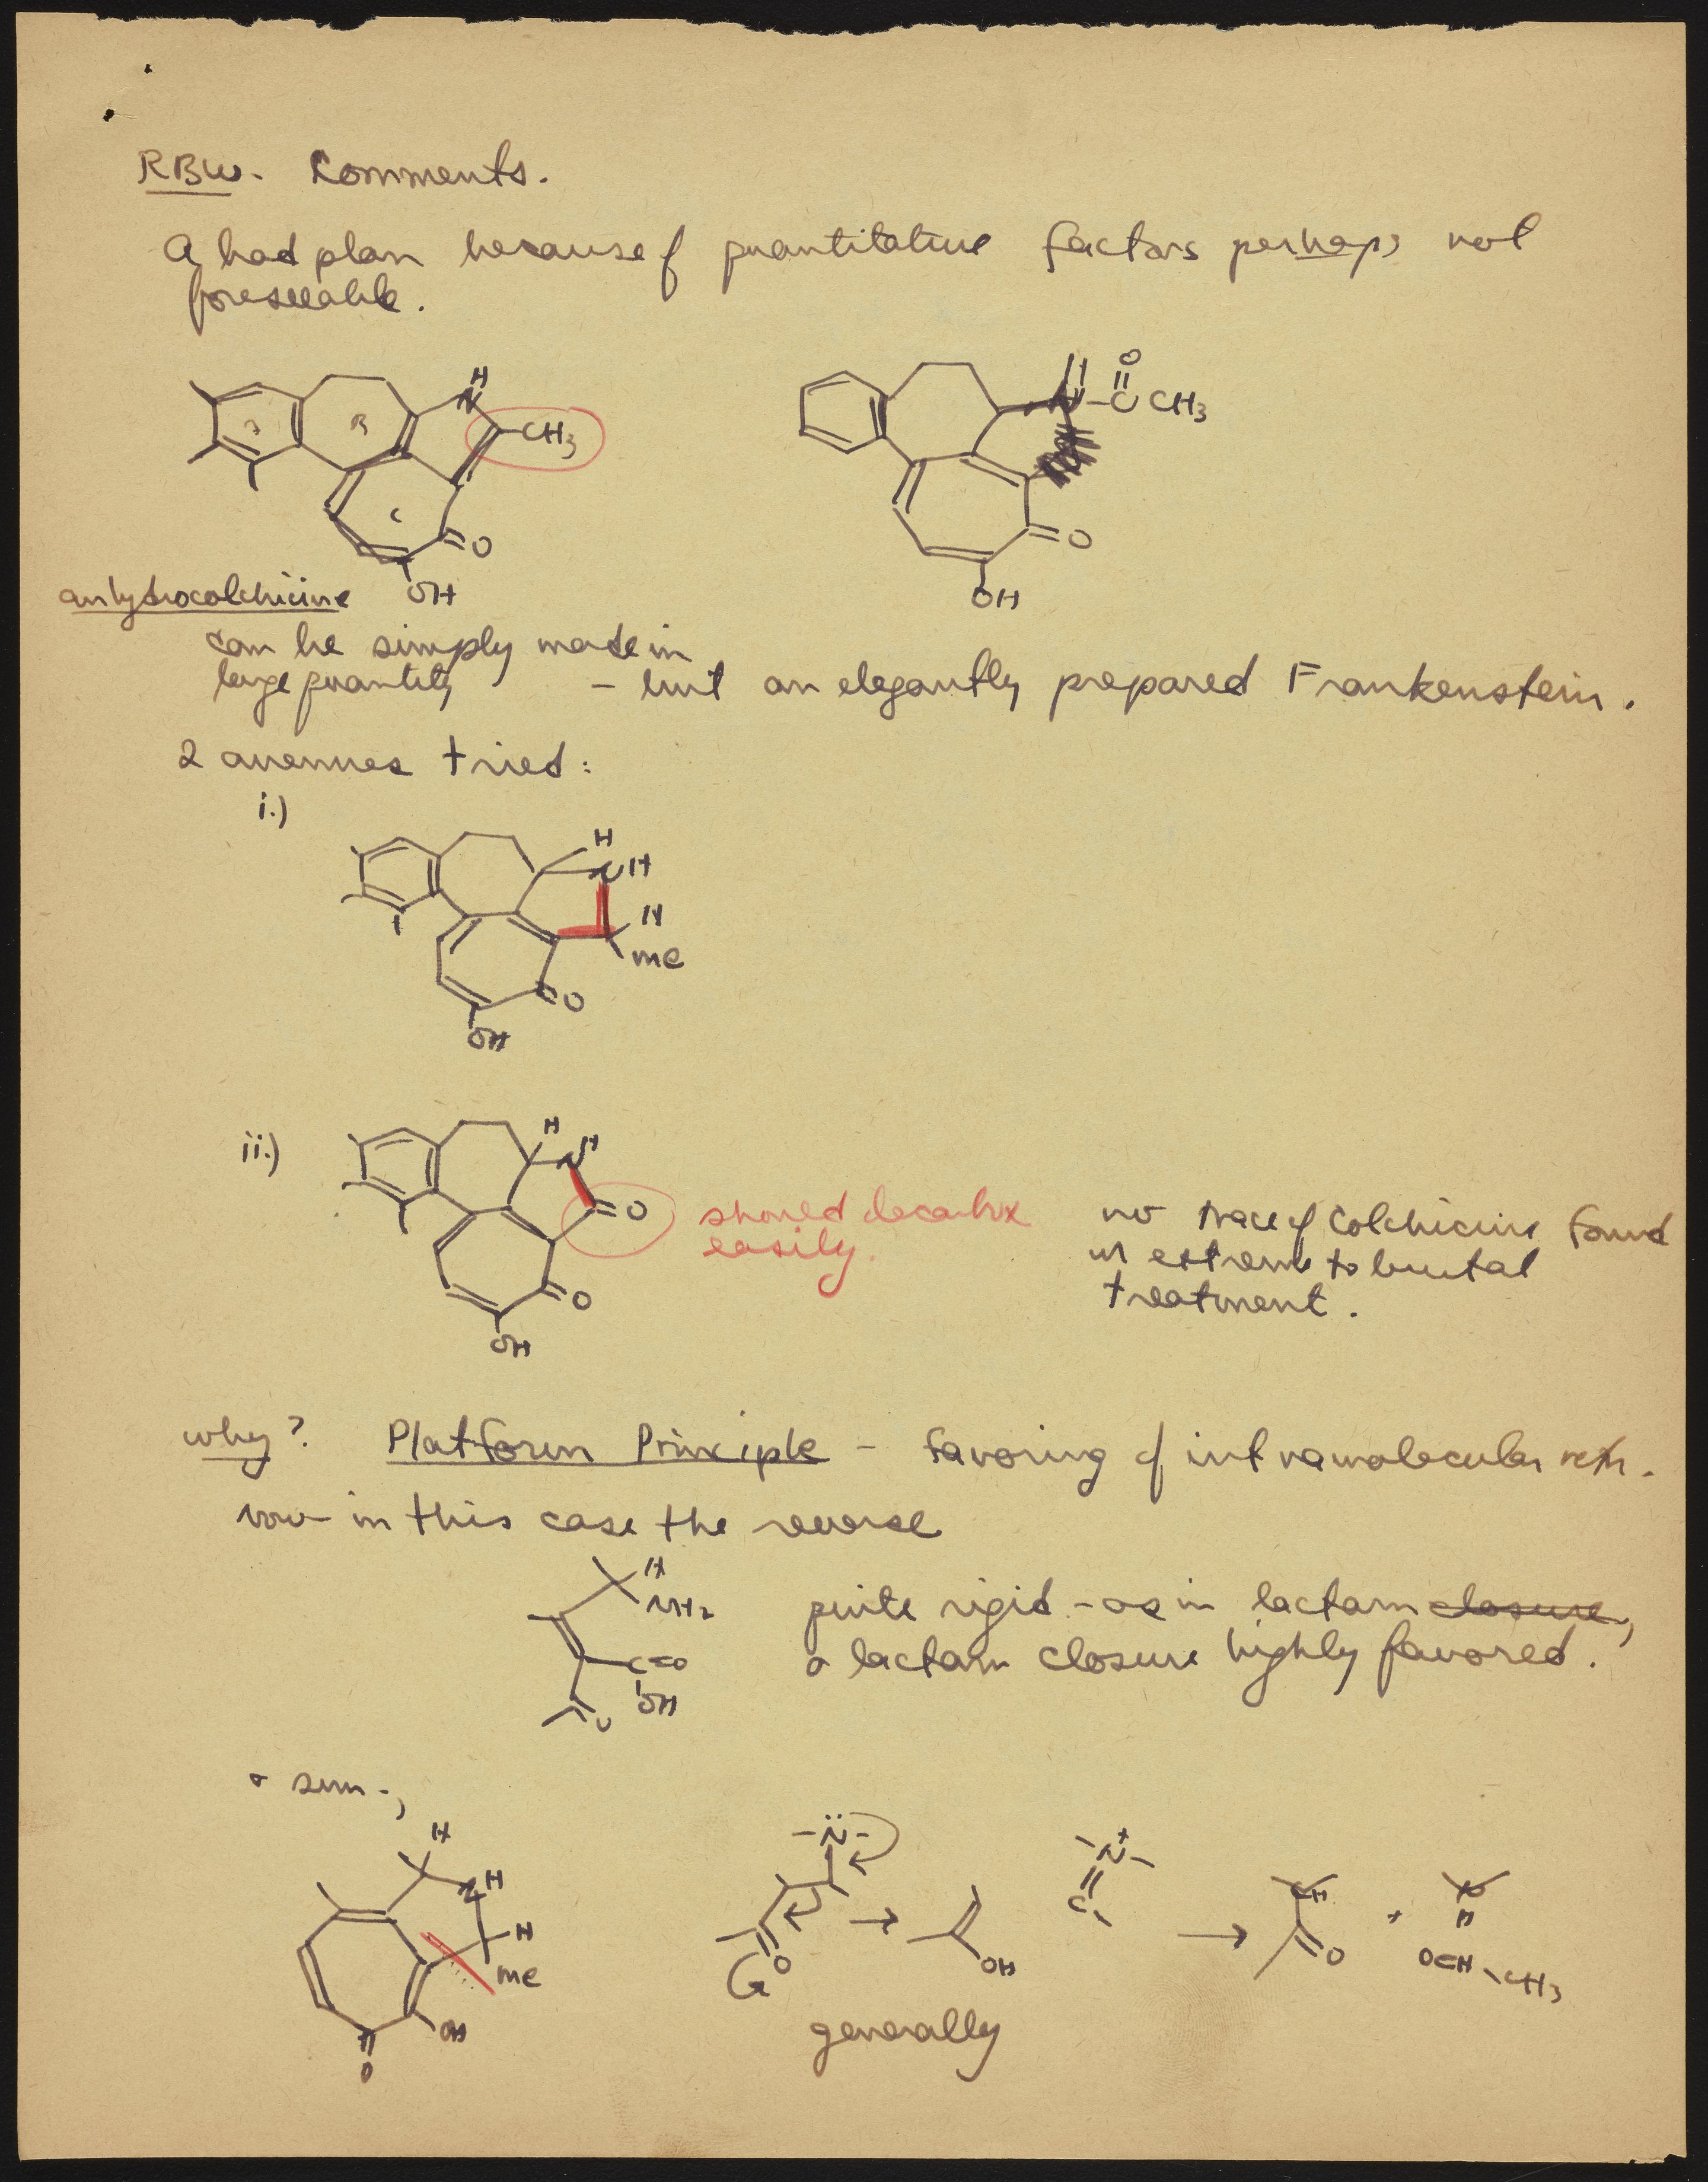 RBW. Comments.
A bad plan because of quantitative factors perhaps not
foreseeable.
H
N
CH3
B
C
O
OH
O
N-C CH3
O
OH
anhydrocolchicine
can be simply made in
large quantity - but an elegantly prepared Frankenstein.
2 avenues tried:
i.)
H
NH
H
me
O
OH
ii.)
H
N H
O
O
OH
should decarbox
easily.
no trace of Colchicine found
in extreme to brutal
treatment.
why? Platform Principle - favoring of intramolecular rxn.
now in this case the reverse
H
NH2
C=O
OH
O
quite rigid - as in lactam closure,
a lactam closure highly favored.
+ sim.,
H
N H
H
me
OH
O
-N̈-
O
G
→
OH
-N+-
C
→
CH
O
+
N
H
OCH-CH3
generally